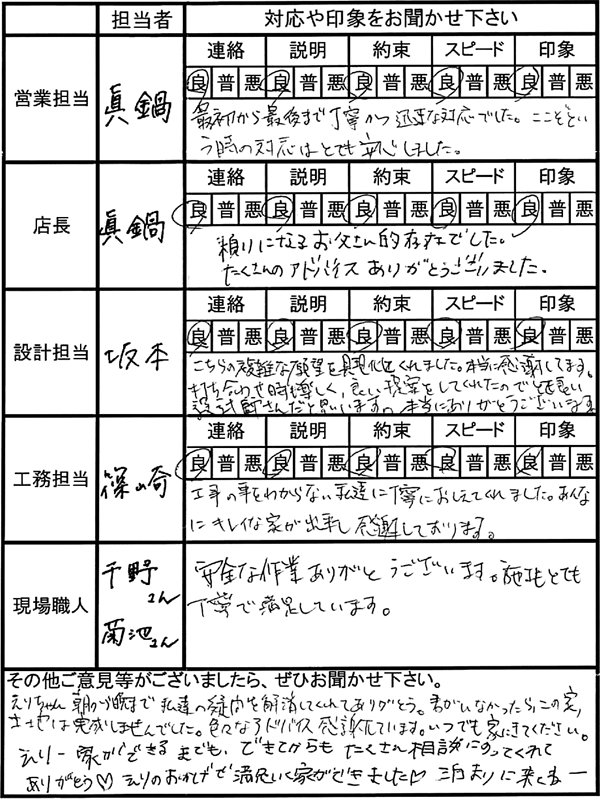 担当者 対応や印象をお聞かせ下さい
営業担当 眞鍋
連絡 説明 約束 スピード 印象
良 普 悪 良 普 悪 良 普 悪 良 普 悪 良 普 悪
最初から最後まで丁寧かつ迅速な対応でした。ここぞとい
う時の対応はとても安心しました。
店長 眞鍋
連絡 説明 約束 スピード 印象
良 普 悪 良 普 悪 良 普 悪 良 普 悪 良 普 悪
頼りになるお父さん的存在でした。
たくさんのアドバイスありがとうございました。
設計担当 坂本
連絡 説明 約束 スピード 印象
良 普 悪 良 普 悪 良 普 悪 良 普 悪 良 普 悪
こちらの複雑な願望を具現化してくれました。本当に感謝してます。
打ち合わせ時も楽しく、良い提案をしてくれたのでとても良い
設計師さんだと思います。本当にありがとうございます
工務担当 篠崎
連絡 説明 約束 スピード 印象
良 普 悪 良 普 悪 良 普 悪 良 普 悪 良 普 悪
工事の事をわからない私達に丁寧におしえてくれました。あんな
にキレイな家が出来し感謝しております。
現場職人 千野さん 菊池さん
安全な作業ありがとうございます。施工とても
丁寧で満足しています。
その他ご意見等がございましたら、ぜひお聞かせ下さい。
えりちゃん 朝から晩まで私達の疑問を解消してくれてありがとう。君がいなかったら、この家、
土地は完成しませんでした。色々なアドバイス感謝しています。いつでも家にきてください。
えりー 家ができるまでも、できてからもたくさん相談にのってくれて
ありがとう♡ えりのおかげで満足いく家ができました♡ 泊まりに来てねー